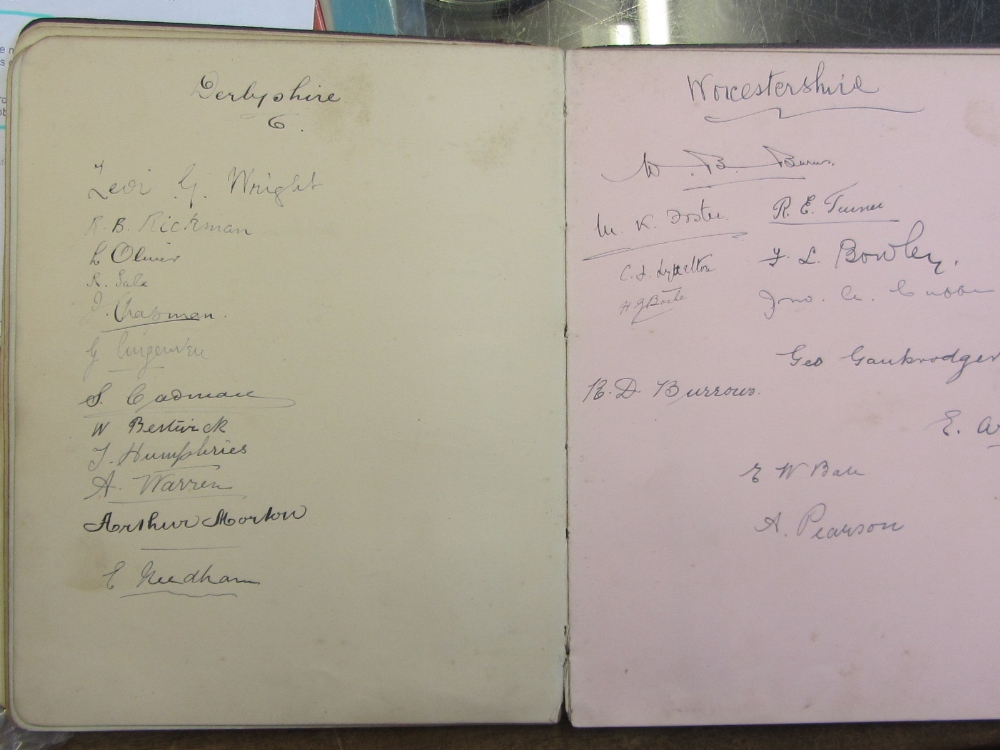 Derbyshire
6.
Levi G. Wright
R. B. Rickman
L Oliver
R. Sale
J. Chapman.
G Curgenven
S. Cadman
W Bestwick
J. Humphries
A. Warren
Arthur Morton
E Needham
Worcestershire
W. B. Burns.
W. K. Foster.
R. E. Turner
C. F. Lyttelton
F. L. Bowley.
H. G Bache
Jno. A. Cuffe
Geo Gaukrodger
R. D. Burrows.
E. Ar
E W Bale
A. Pearson